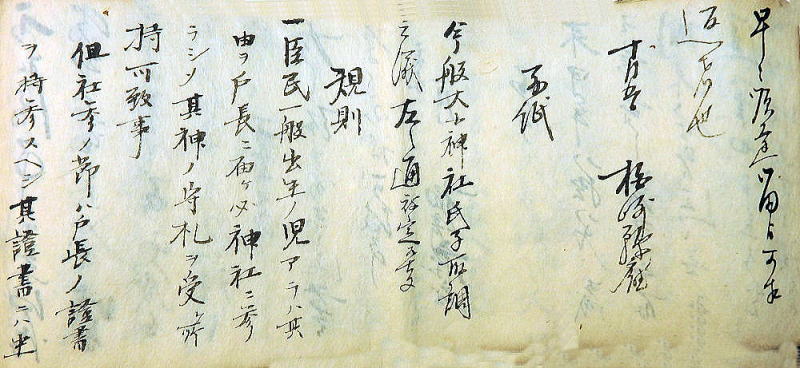 早々順達留ヨリ可相
返者也
十月 柏崎縣庁
別紙
今般大小神社氏子取調
之儀左之通被定候事
規則
一臣民一般出生ノ児アラハ其
由ヲ戸長ニ届ケ必神社ニ参
ラシメ其神ノ守札ヲ受ケ所
持可致事
但社参ノ節ハ戸長ノ證書
ヲ持参スヘシ其證書ニハ生